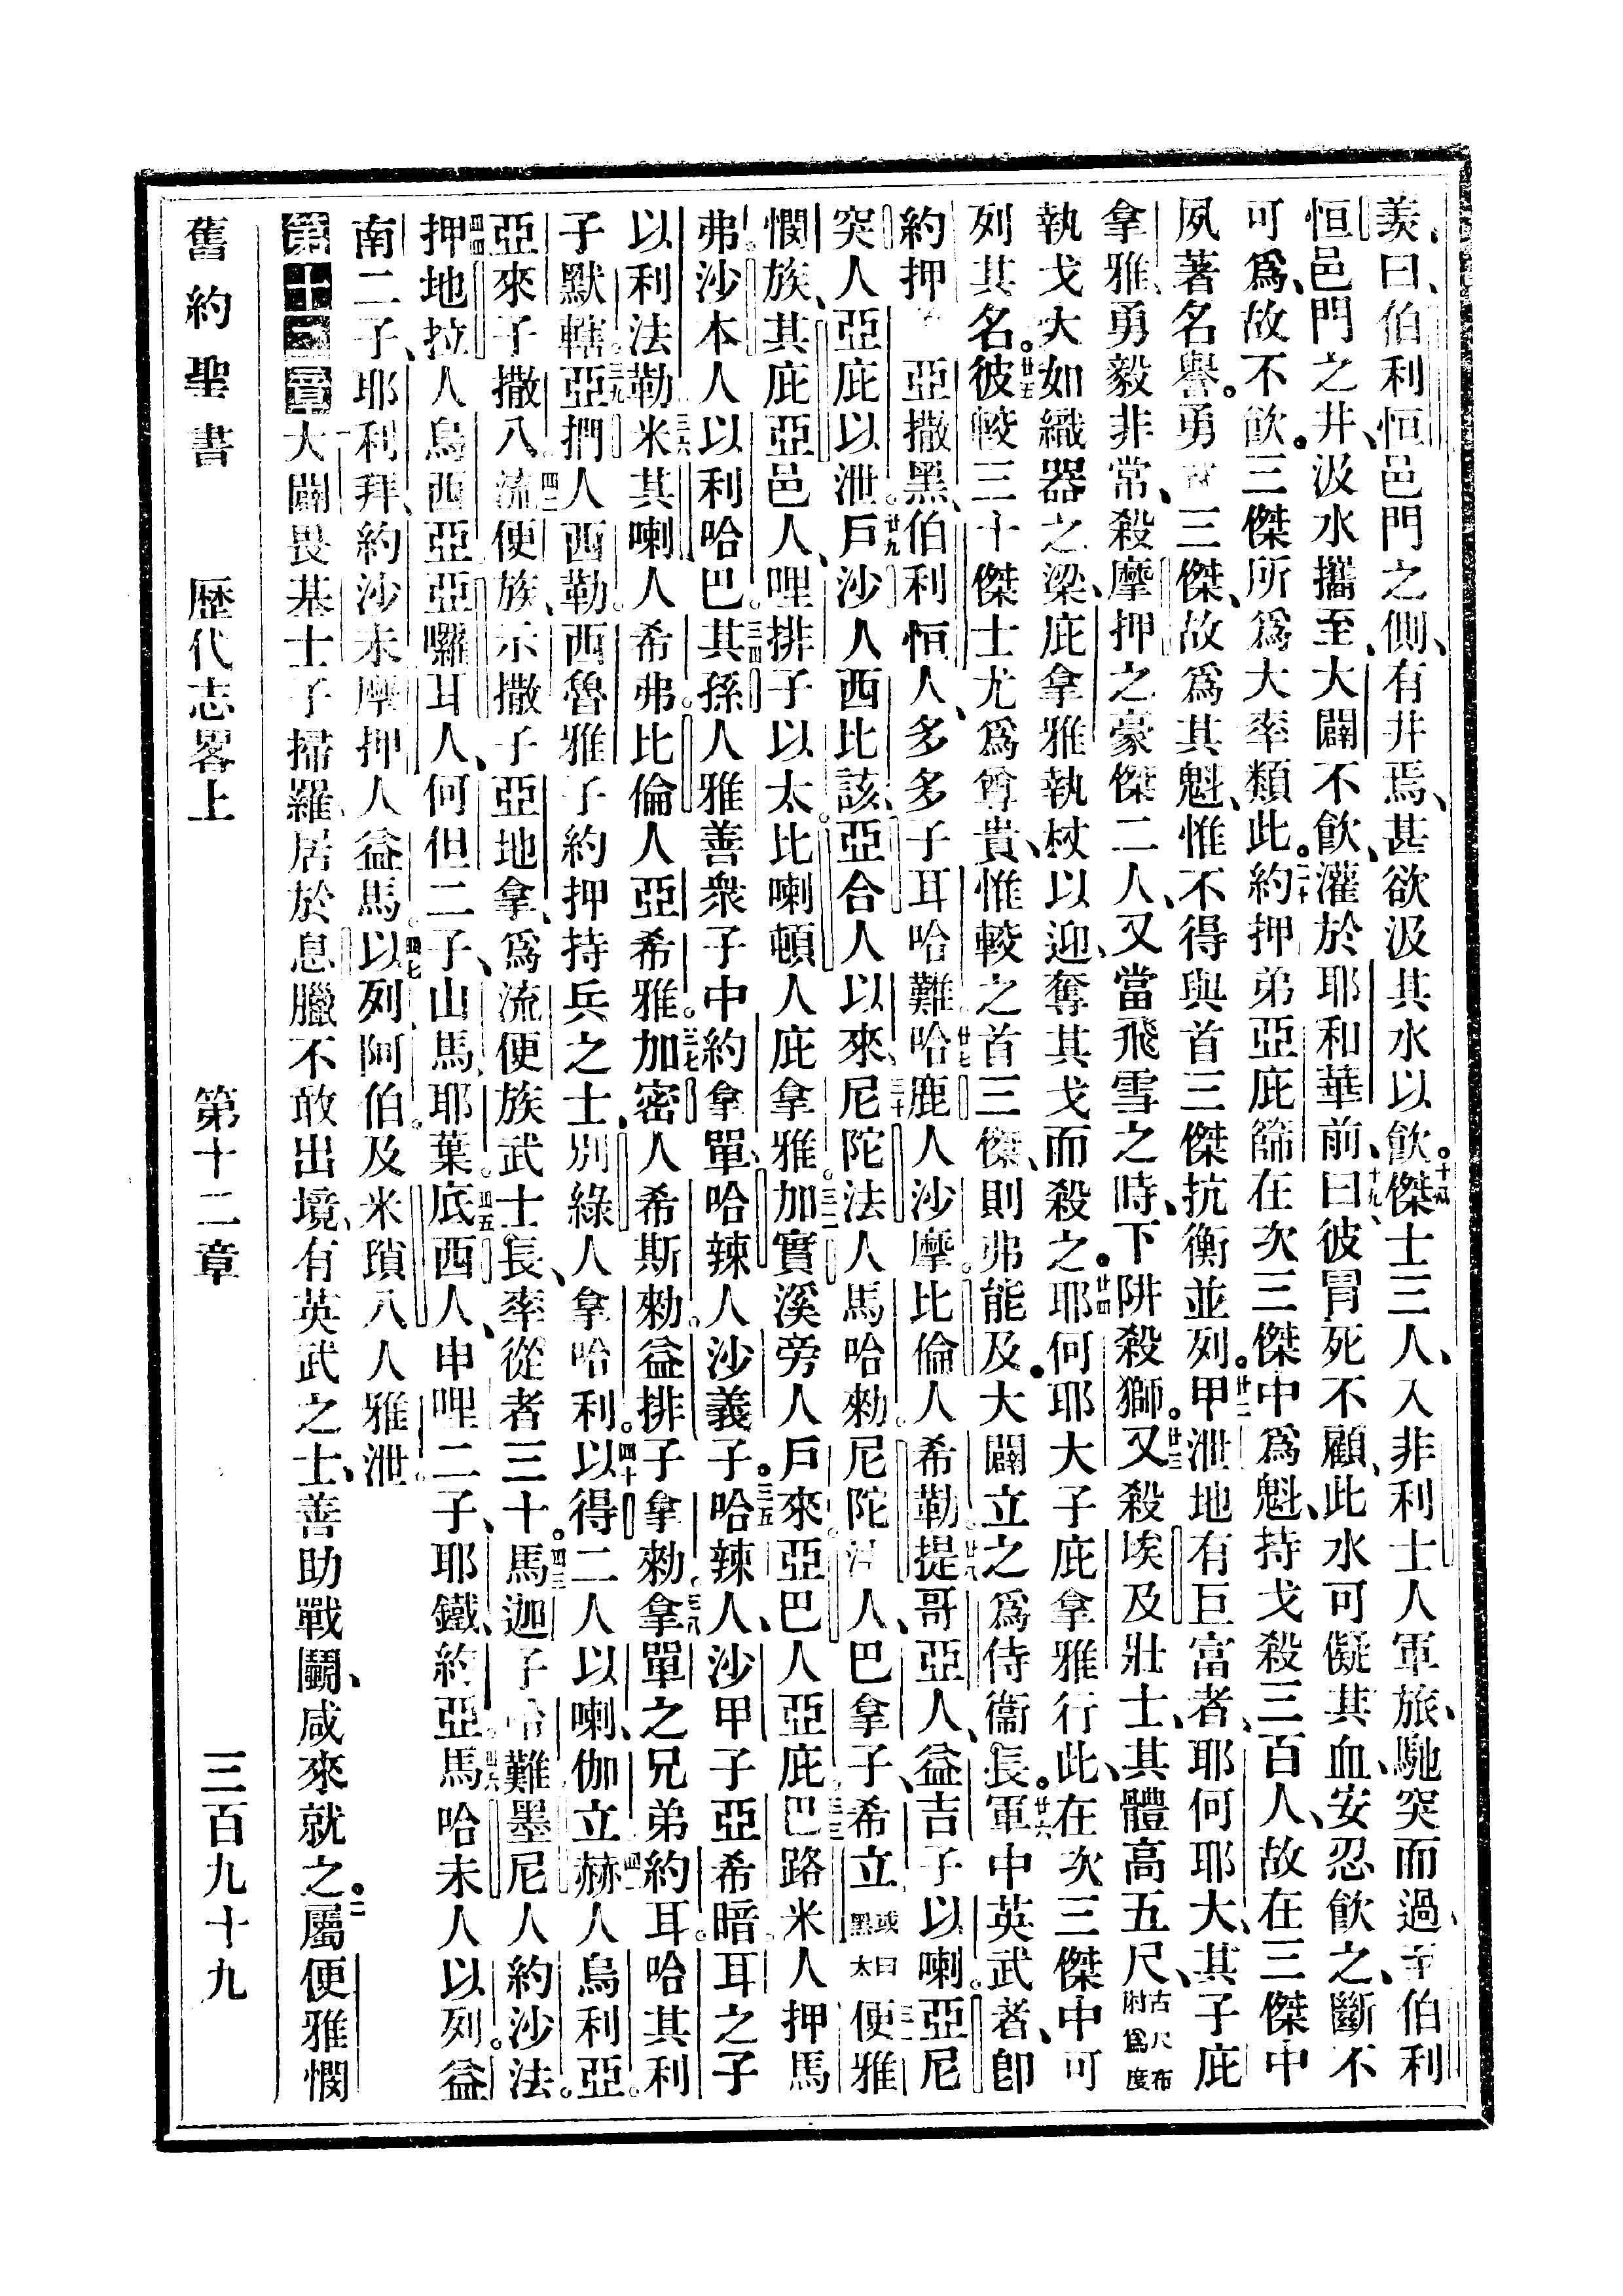 羨、曰、伯利恒邑門之側、有井焉、甚欲汲其水以飲。十八傑士三人、入非利士人軍旅、馳突而過、至伯利
恒邑門之井、汲水攜至、大闢不飲、灌於耶和華前、十九、曰彼冒死不顧、此水可儗其血、安忍飲之、斷不
可爲、故不飲。三傑所爲大率類此。二十約押弟亞庇篩在次三傑中爲魁、持戈殺三百人、故在三傑中
夙著名譽。勇 三傑、故爲其魁、惟不得與首三傑抗衡並列。廿二甲泄地有巨富者、耶何耶大、其子庇
拿雅、勇毅非常、殺摩押之豪傑二人、又當飛雪之時、下阱殺獅。廿三又殺埃及壯士、其體高五尺、古尺布肘爲度
執戈大如織器之梁、庇拿雅執杖以迎、奪其戈而殺之。廿四耶何耶大子庇拿雅行此、在次三傑中可
列其名。廿五彼較三十傑士尤爲尊貴、惟較之首三傑、則弗能及。大闢立之爲侍衞長。廿六軍中英武者、卽
約押 亞撒黑、伯利恒人、多多子耳哈難、廿七哈鹿人沙摩。比倫人希勒。廿八提哥亞人、益吉子以喇。亞尼
突人亞庇以泄。廿九戶沙人西比該、亞合人以來、三十尼陀法人馬哈勑。尼陀法人、巴拿子、希立或曰黑太便雅
憫族、其庇亞邑人、哩排子以太比喇頓人庇拿雅。三二加實溪旁人戶來亞巴人亞庇三三巴路米人押馬
弗。沙本人以利哈巴。三四其孫人雅善衆子中約拿單、哈辣人沙義子。三五哈辣人、沙甲子亞希暗耳之子
以利法勒三六米其喇人希弗。比倫人亞希雅。三七加密人希斯勑。益排子拿勑。三八拿單之兄弟約耳。哈其利
子默轄。三九亞捫人西勒。西魯雅子約押持兵之士、別綠人拿哈利。四十以得二人以喇、伽立赫四一人烏利亞。
亞來子撒八。四二流便族、示撒子亞地拿、爲流便族武士長、率從者三十。四三馬迦子哈難墨尼人約沙法。
四四押地拉人烏西亞亞囉耳人、何但二子、山馬、耶葉。四五底西人、申哩二子、耶鐵、約亞。四六馬哈未人以列。益
南二子、耶利拜、約沙未摩押人益馬。四七以列、阿伯。及米瑣八人雅泄。
第十二章大闢畏基士子掃羅、居於息臘不敢出境、有英武之士、善助戰鬭、咸來就之。二屬便雅憫
舊約聖書 歷代志畧上 第十二章 三百九十九